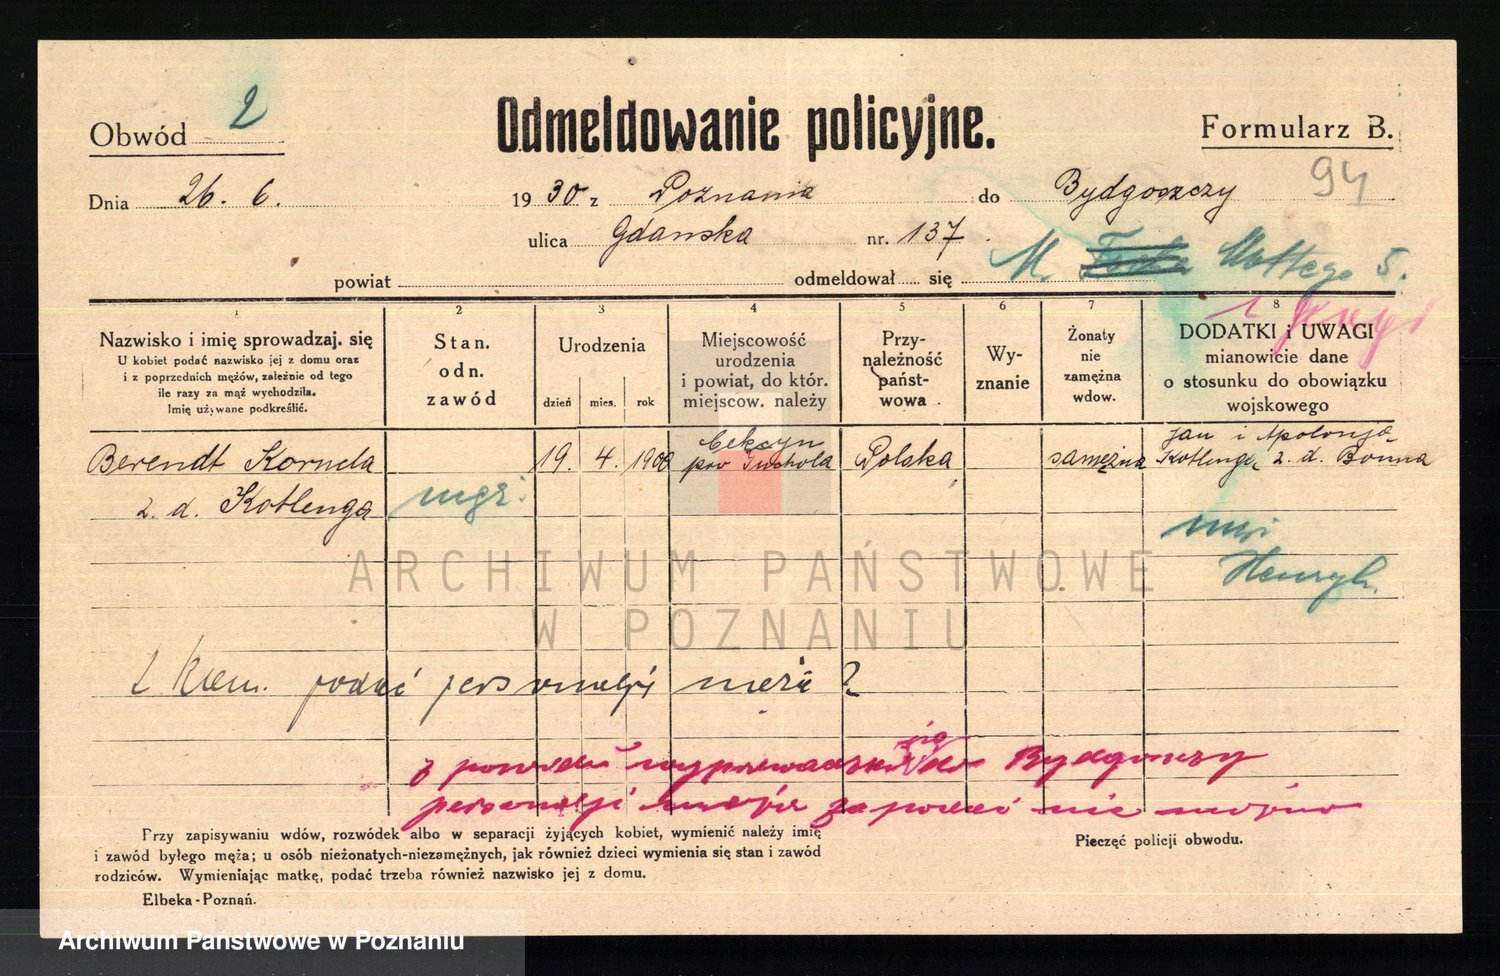 Odmeldowanie policyjne.
Obwód 2
Formularz B.
94
Dnia 26. 6. 1930 z Poznania do Bydgoszczy
ulica Gdańska nr. 137
M. Mottego 5.
powiat odmeldował się
1 2 3 4 5 6 7 8
Nazwisko i imię sprowadzaj. się
U kobiet podać nazwisko jej z domu oraz
i z poprzednich mężów, zależnie od tego
ile razy za mąż wychodziła.
Imię używane podkreślić.
Stan.
odn.
zawód
Urodzenia
dzień mies. rok
Miejscowość
urodzenia
i powiat, do któr.
miejscow. należy
Przy-
należność
państ-
wowa
Wy-
znanie
Żonaty
nie
zamężna
wdow.
DODATKI i UWAGI
mianowicie dane
o stosunku do obowiązku
wojskowego
Berendt Kornela
z. d. Kotlenga
19. 4. 1908
Cekcyn
pow Tuchola
Polska
zamężna
Jan i Apolonja
Kotlenga z. d. Bonna
Henryk
podać personalji męża ?
z powodu wyprowadzki się do Bydgoszczy
personalji męża zapodać nie można
Przy zapisywaniu wdów, rozwódek albo w separacji żyjących kobiet, wymienić należy imię
i zawód byłego męża; u osób nieżonatych-niezamężnych, jak również dzieci wymienia się stan i zawód
rodziców. Wymieniając matkę, podać trzeba również nazwisko jej z domu.
Pieczęć policji obwodu.
Elbeka-Poznań.
ARCHIWUM PAŃSTWOWE
W POZNANIU
Archiwum Państwowe w Poznaniu